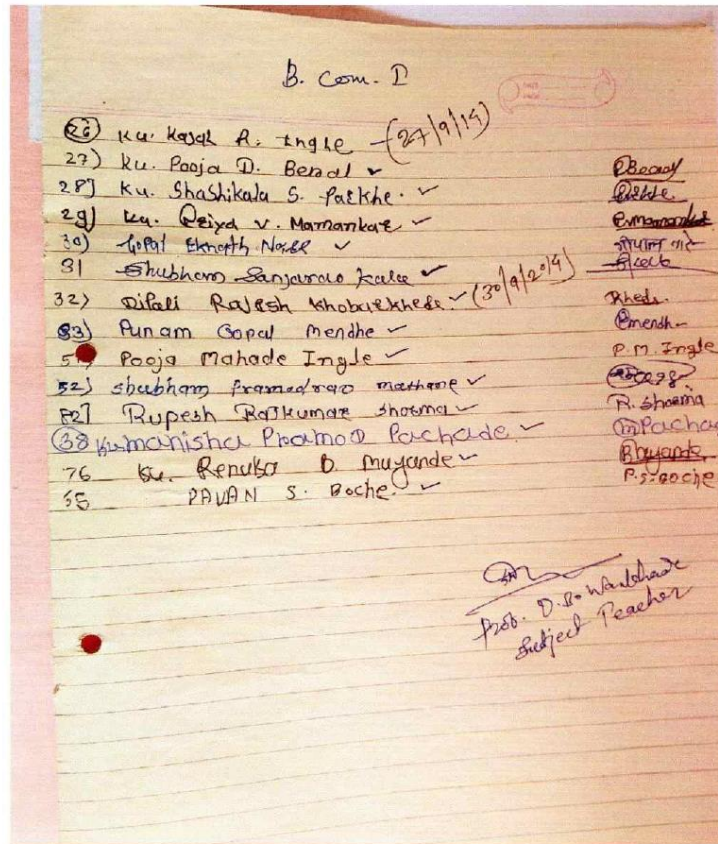 B. Com. I
26) Ku. Kajal R. Ingle - (27/9/14)
27) Ku. Pooja D. Benal ✓
28] Ku. Shashikala S. Parkhe. ✓
29] Ku. Priya V. Mamankar ✓ P.V.Mamankar
30) Gopal Eknath Nare ✓ गोपाल नारे
31 Shubham Sanjarao Kale ✓
32) Dipali Rajesh Khobarkhede. ✓ (30/9/2014) Khede.
33) Punam Gopal Mendhe ✓ Pmendh
5 Pooja Mahade Ingle ✓ P.M. Ingle
52) Shubham Pramodrao mathane ✓
Rupesh Rajkumar Sharma ✓ R. Sharma
38 Ku manisha Pramod Pachade ✓ mPacha
76 Ku. Renuka D. Mayande ✓
55 PAVAN S. Boche. ✓ P.S. Boche
Prof. D.B. Wankhade
Subject Teacher